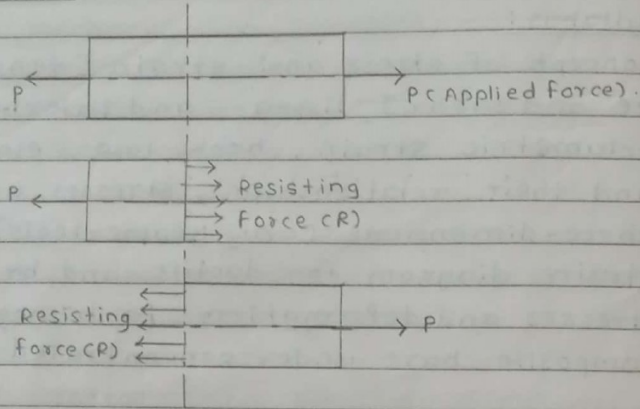 P
P( Applied force).
P
Resisting
force (R)
Resisting
force (R)
P